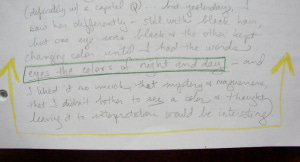 (defendably w/ a capital Q)... but yesterday, I
saw her differently - still with black hair,
but one eye was black & the other kept
changing color until I had the words
eyes the colors of night and day - and
I liked it so much, that mystery &
that I didn't bother to see a color & thought
leaving it to interpretation would be interesting.